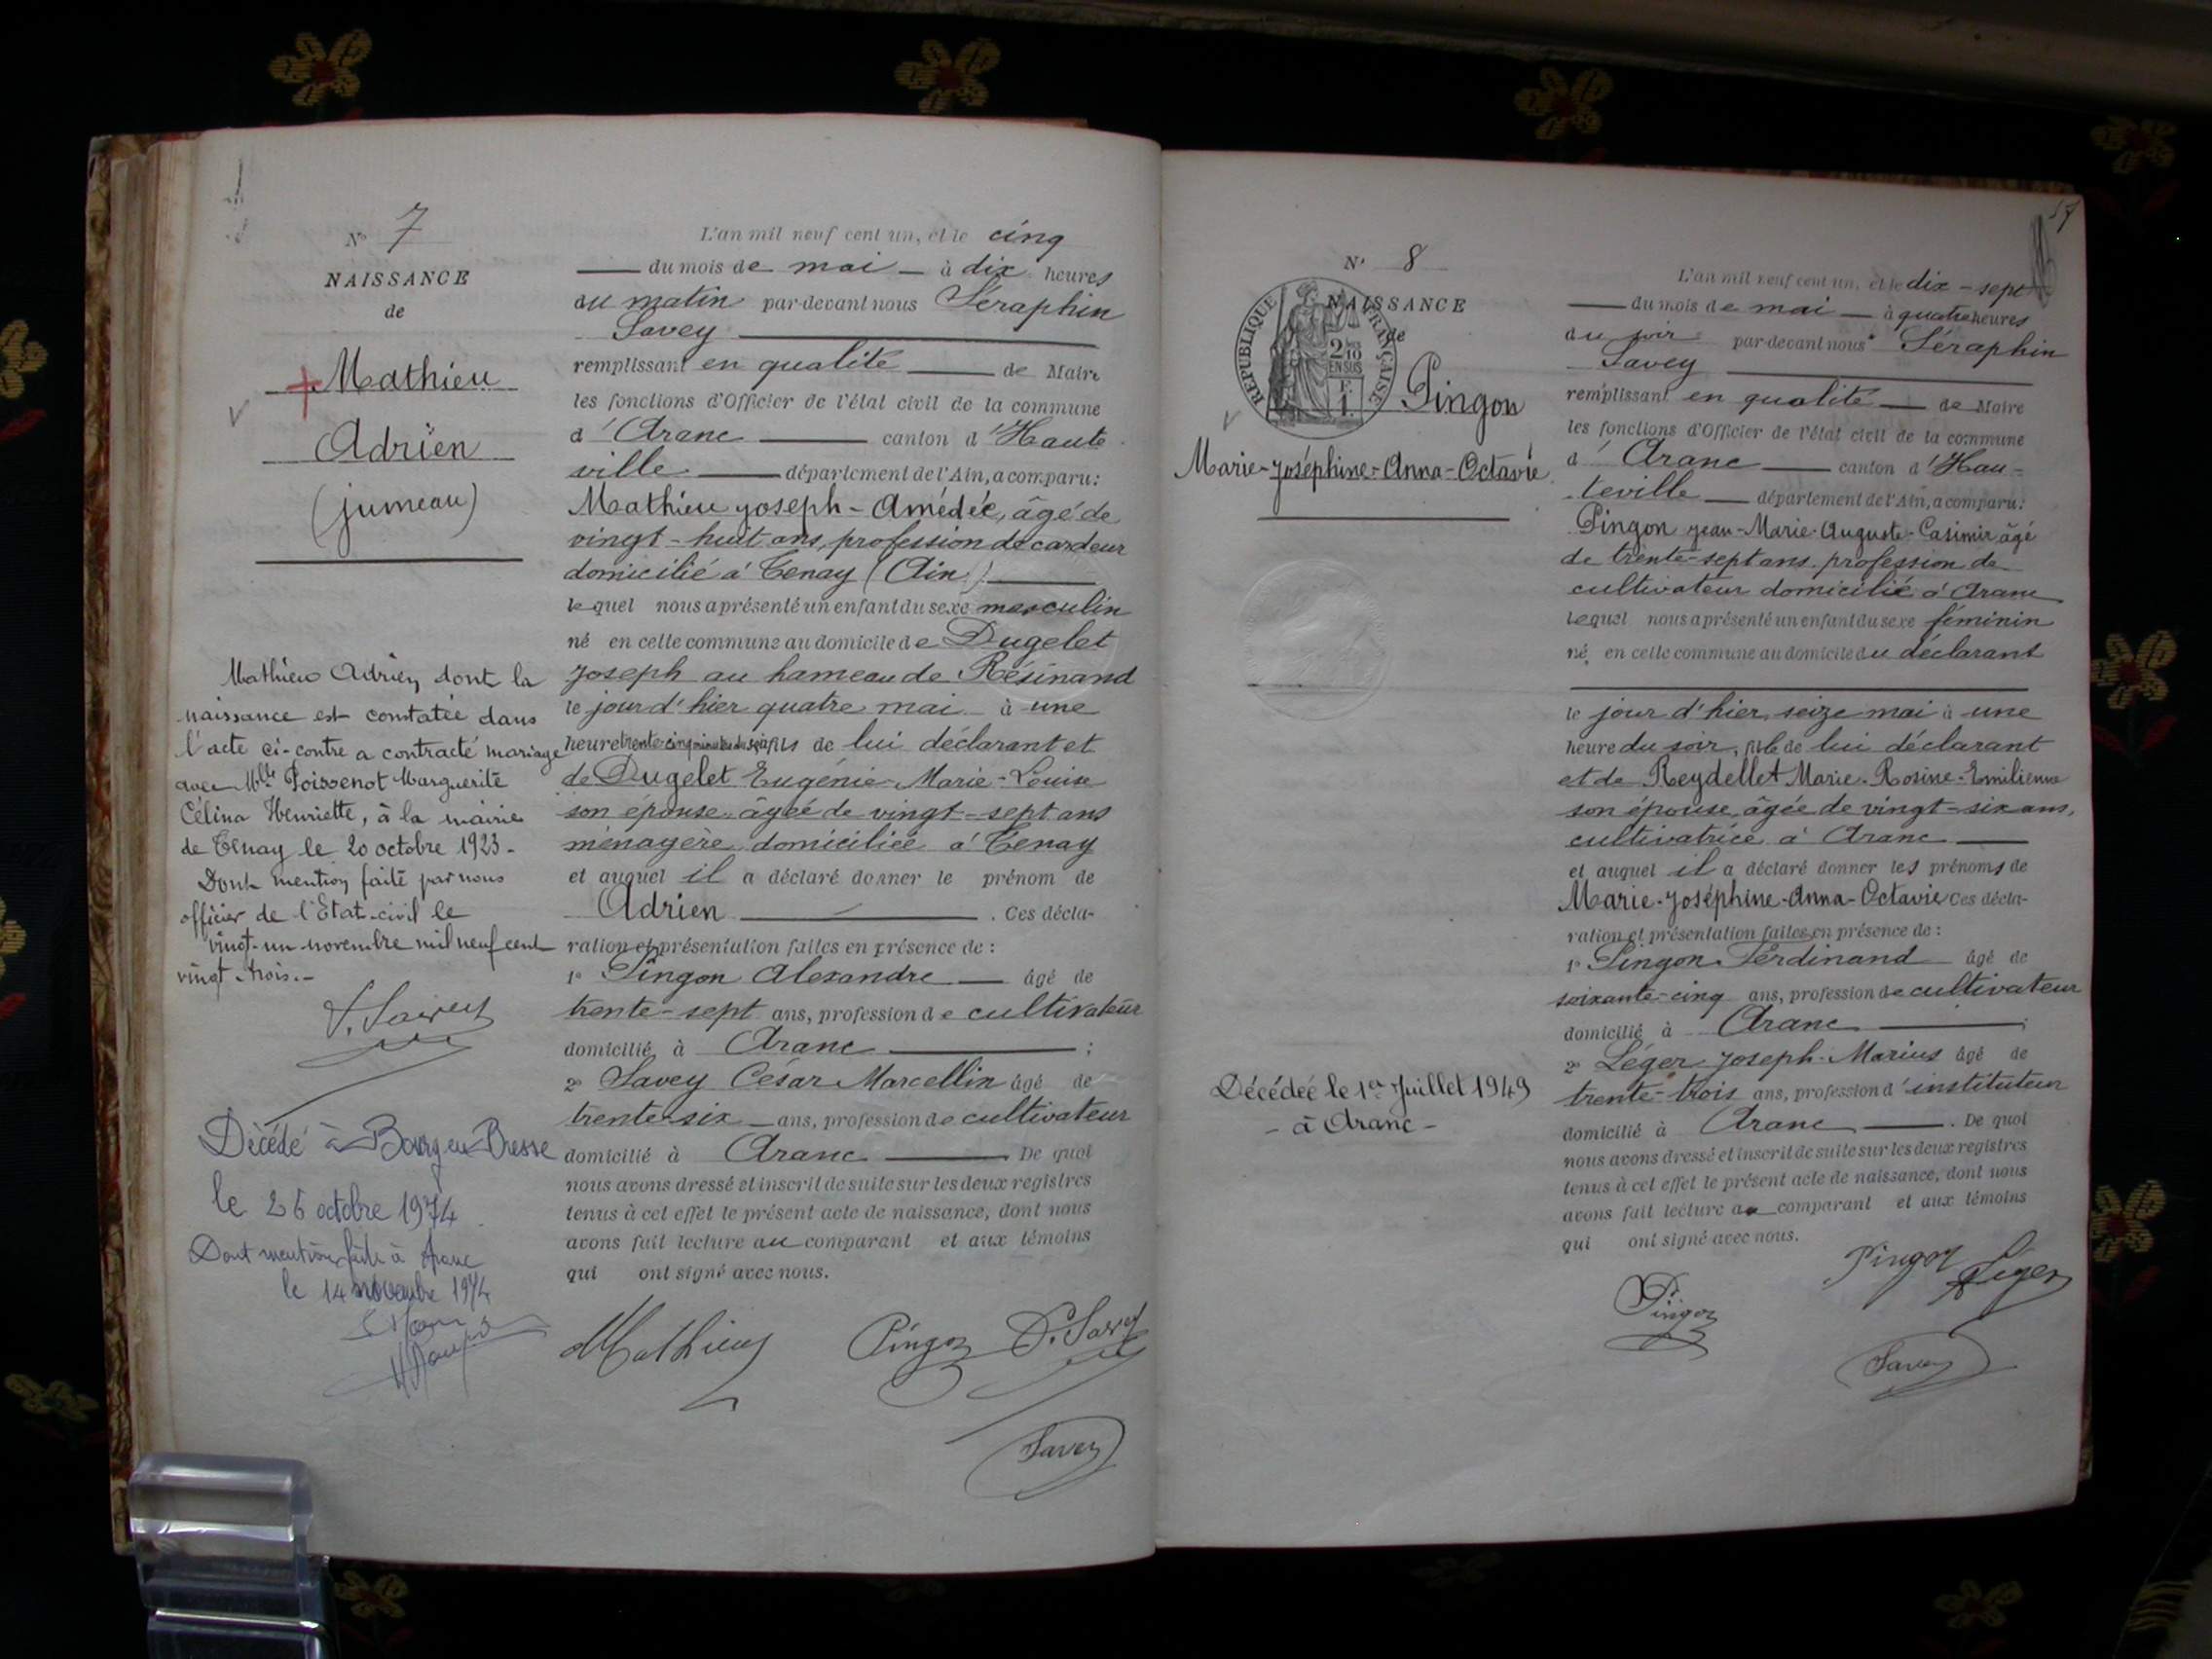 N° 7
NAISSANCE
de
Mathieu
Adrien
(jumeau)
Mathieu Adrien dont la
naissance est constatée dans
l'acte ci-contre a contracté mariage
avec Mlle Poissenot Marguerite
Célina Henriette, à la mairie
de Tenay le 20 octobre 1923.
Dont mention faite par nous
officier de l'Etat-civil le
vingt-un novembre mil neuf cent
vingt-trois.-
Décédé à Bourg en Bresse
le 26 octobre 1974
Dont mention faite à Aranc
le 14 novembre 1974
L'an mil neuf cent un, et le cinq
du mois de mai à dix heures
du matin par-devant nous Séraphin
Savey
remplissant en qualité de Maire
les fonctions d'Officier de l'état civil de la commune
d'Aranc canton d'Haute
ville département de l'Ain, a comparu:
Mathieu Joseph-Amédée, âgé de
vingt-huit ans, profession de cardeur
domicilié à Tenay (Ain)
lequel nous a présenté un enfant du sexe masculin
né en cette commune au domicile de Dugelet
Joseph au hameau de Résinand
le jour d'hier quatre mai à une
heure trente-cinq minutes du soir fils de lui déclarant et
de Dugelet Eugénie-Marie-Louise
son épouse, âgée de vingt-sept ans
ménagère domiciliée à Tenay
et auquel il a déclaré donner le prénom de
Adrien . Ces décla-
ration et présentation faites en présence de :
1° Pingon Alexandre âgé de
trente-sept ans, profession de cultivateur
domicilié à Aranc ;
2° Savey César Marcellin âgé de
trente-six ans, profession de cultivateur
domicilié à Aranc De quoi
nous avons dressé et inscrit de suite sur les deux registres
tenus à cet effet le présent acte de naissance, dont nous
avons fait lecture au comparant et aux témoins
qui ont signé avec nous.
Mathieu Pingon S. Savey
Savey
57
N° 8
NAISSANCE
de
REPUBLIQUE FRANÇAISE
2/10
EN SUS
F.
1.
Pingon
Marie-Joséphine-Anna-Octavie
Décédée le 1er Juillet 1949
- à Aranc -
L'an mil neuf cent un, et le dix-sept
du mois de mai à quatre heures
du soir par-devant nous Séraphin
Savey
remplissant en qualité de Maire
les fonctions d'Officier de l'état civil de la commune
d'Aranc canton d'Hau-
teville département de l'Ain, a comparu:
Pingon Jean-Marie-Auguste-Casimir âgé
de trente-sept ans profession de
cultivateur domicilié à Aranc
lequel nous a présenté un enfant du sexe féminin
né en cette commune au domicile du déclarant
le jour d'hier seize mai à une
heure du soir, fille de lui déclarant
et de Reydellet Marie-Rosine-Emilienne
son épouse âgée de vingt-six ans,
cultivatrice à Aranc
et auquel il a déclaré donner les prénoms de
Marie-Joséphine-Anna-Octavie Ces décla-
ration et présentation faites en présence de :
1° Pingon Ferdinand âgé de
soixante-cinq ans, profession de cultivateur
domicilié à Aranc ;
2° Léger Joseph-Marius âgé de
trente-trois ans, profession d'instituteur
domicilié à Aranc . De quoi
nous avons dressé et inscrit de suite sur les deux registres
tenus à cet effet le présent acte de naissance, dont nous
avons fait lecture au comparant et aux témoins
qui ont signé avec nous.
Pingon Léger
Pingon
Savey